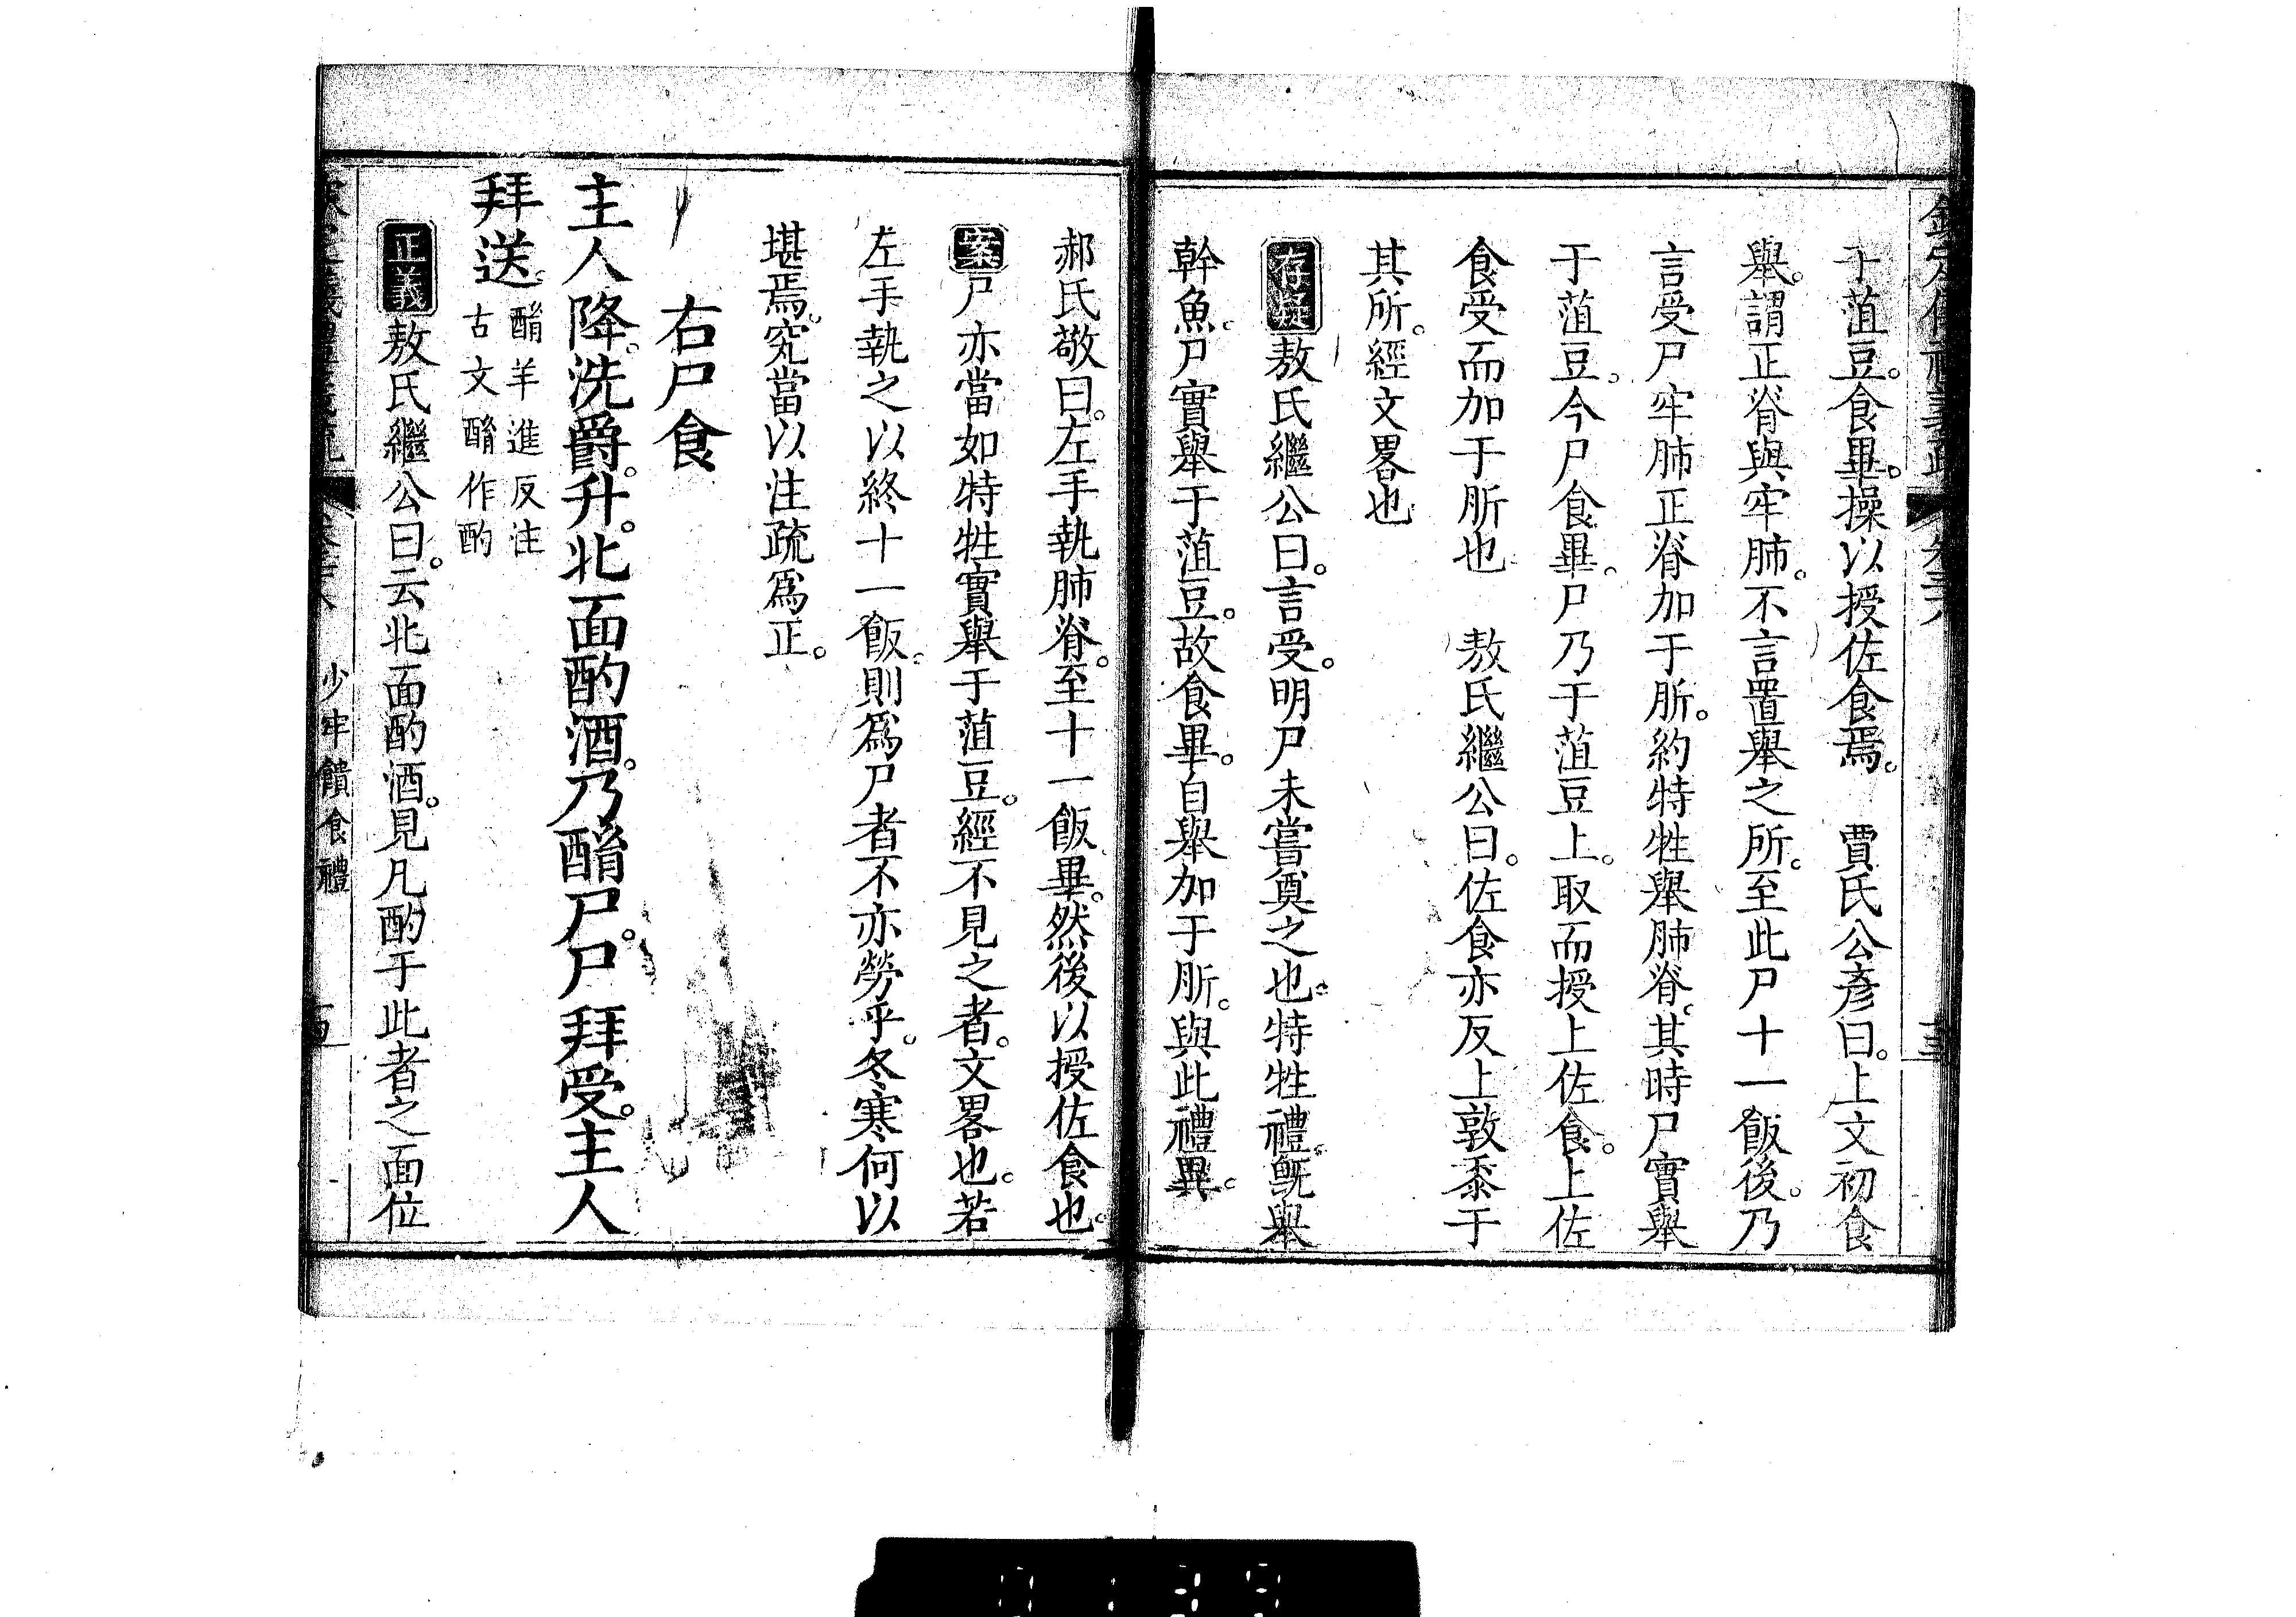 于菹豆。食畢。操以授佐食焉。　賈氏公彥曰。上文初食
舉。謂正脊與牢肺。不言置舉之所。至此尸十一飯後。乃
言受尸牢肺正脊加于肵。約特牲舉肺脊。其時尸實舉
于菹豆。今尸食畢。尸乃于菹豆上。取而授上佐食。上佐
食受而加于肵也　敖氏繼公曰。佐食亦反上敦黍于
其所。經文畧也
存疑敖氏繼公曰。言受。明尸未嘗奠之也。特牲禮。旣舉
幹魚。尸實舉于菹豆。故食畢。自舉加于肵。與此禮異。
郝氏敬曰。左手執肺脊。至十一飯畢。然後以授佐食也。
案尸亦當如特牲實舉于菹豆。經不見之者。文畧也。若
左手執之以終十一飯。則爲尸者不亦勞乎。冬寒何以
堪焉。究當以注疏爲正。
右尸食
主人降。洗爵。升。北面酌酒。乃酳尸。尸拜受。主人
拜送。酳羊進反注
古文酳作酌
正義敖氏繼公曰。云北面酌酒。見凡酌于此者之面位
少牢饋食禮